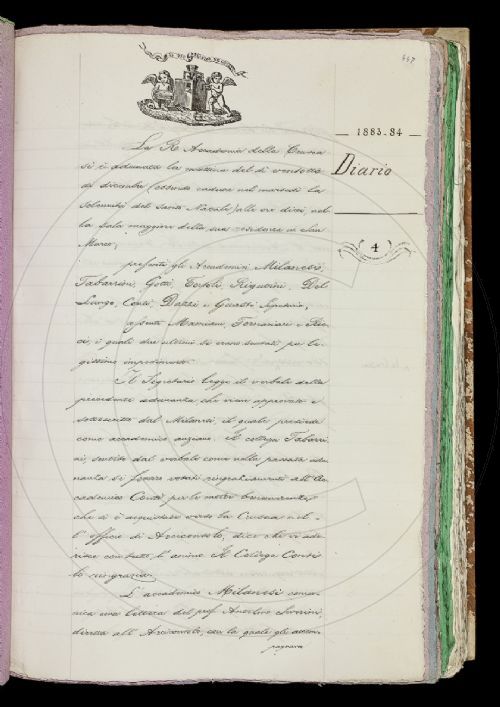 447
1883.84
Diario
4
La R. Accademia della Crusca
si è adunata la mattina del dì ventotto
di dicembre (essendo caduta nel martedì la
solennità del santo Natale) alle ore dieci nel
la sala maggiore della sua residenza in San
Marco;
presenti gli Accademici Milanesi,
Tabarrini, Gotti, Tortoli, Rigutini, Del
Lungo, Conti, Dazzi e Guasti Segretario;
assenti Mamiani, Fornaciari e Ric
ci, i quali due ultimi si erano scusati per le
gittimo impedimento.
Il Segretario legge il verbale della
precedente adunanza, che viene approvato e
sottoscritto dal Milanesi, il quale presiede
come accademico anziano. Il collega Tabarri
ni, sentito dal verbale come nella passata adu
nanza si fossero votati ringraziamenti all'Ac
cademico Conti per le molte benemerenze
che si è acquistate verso la Crusca nel
l'officio di Arciconsolo, dice che vi ade
risce con tutto l'animo. Il Collega Conti
lo ringrazia.
L'accademico Milanesi comu
nica una lettera del prof. Anselmo
diretta all'Arciconsolo, con la quale gli accom
pagnava